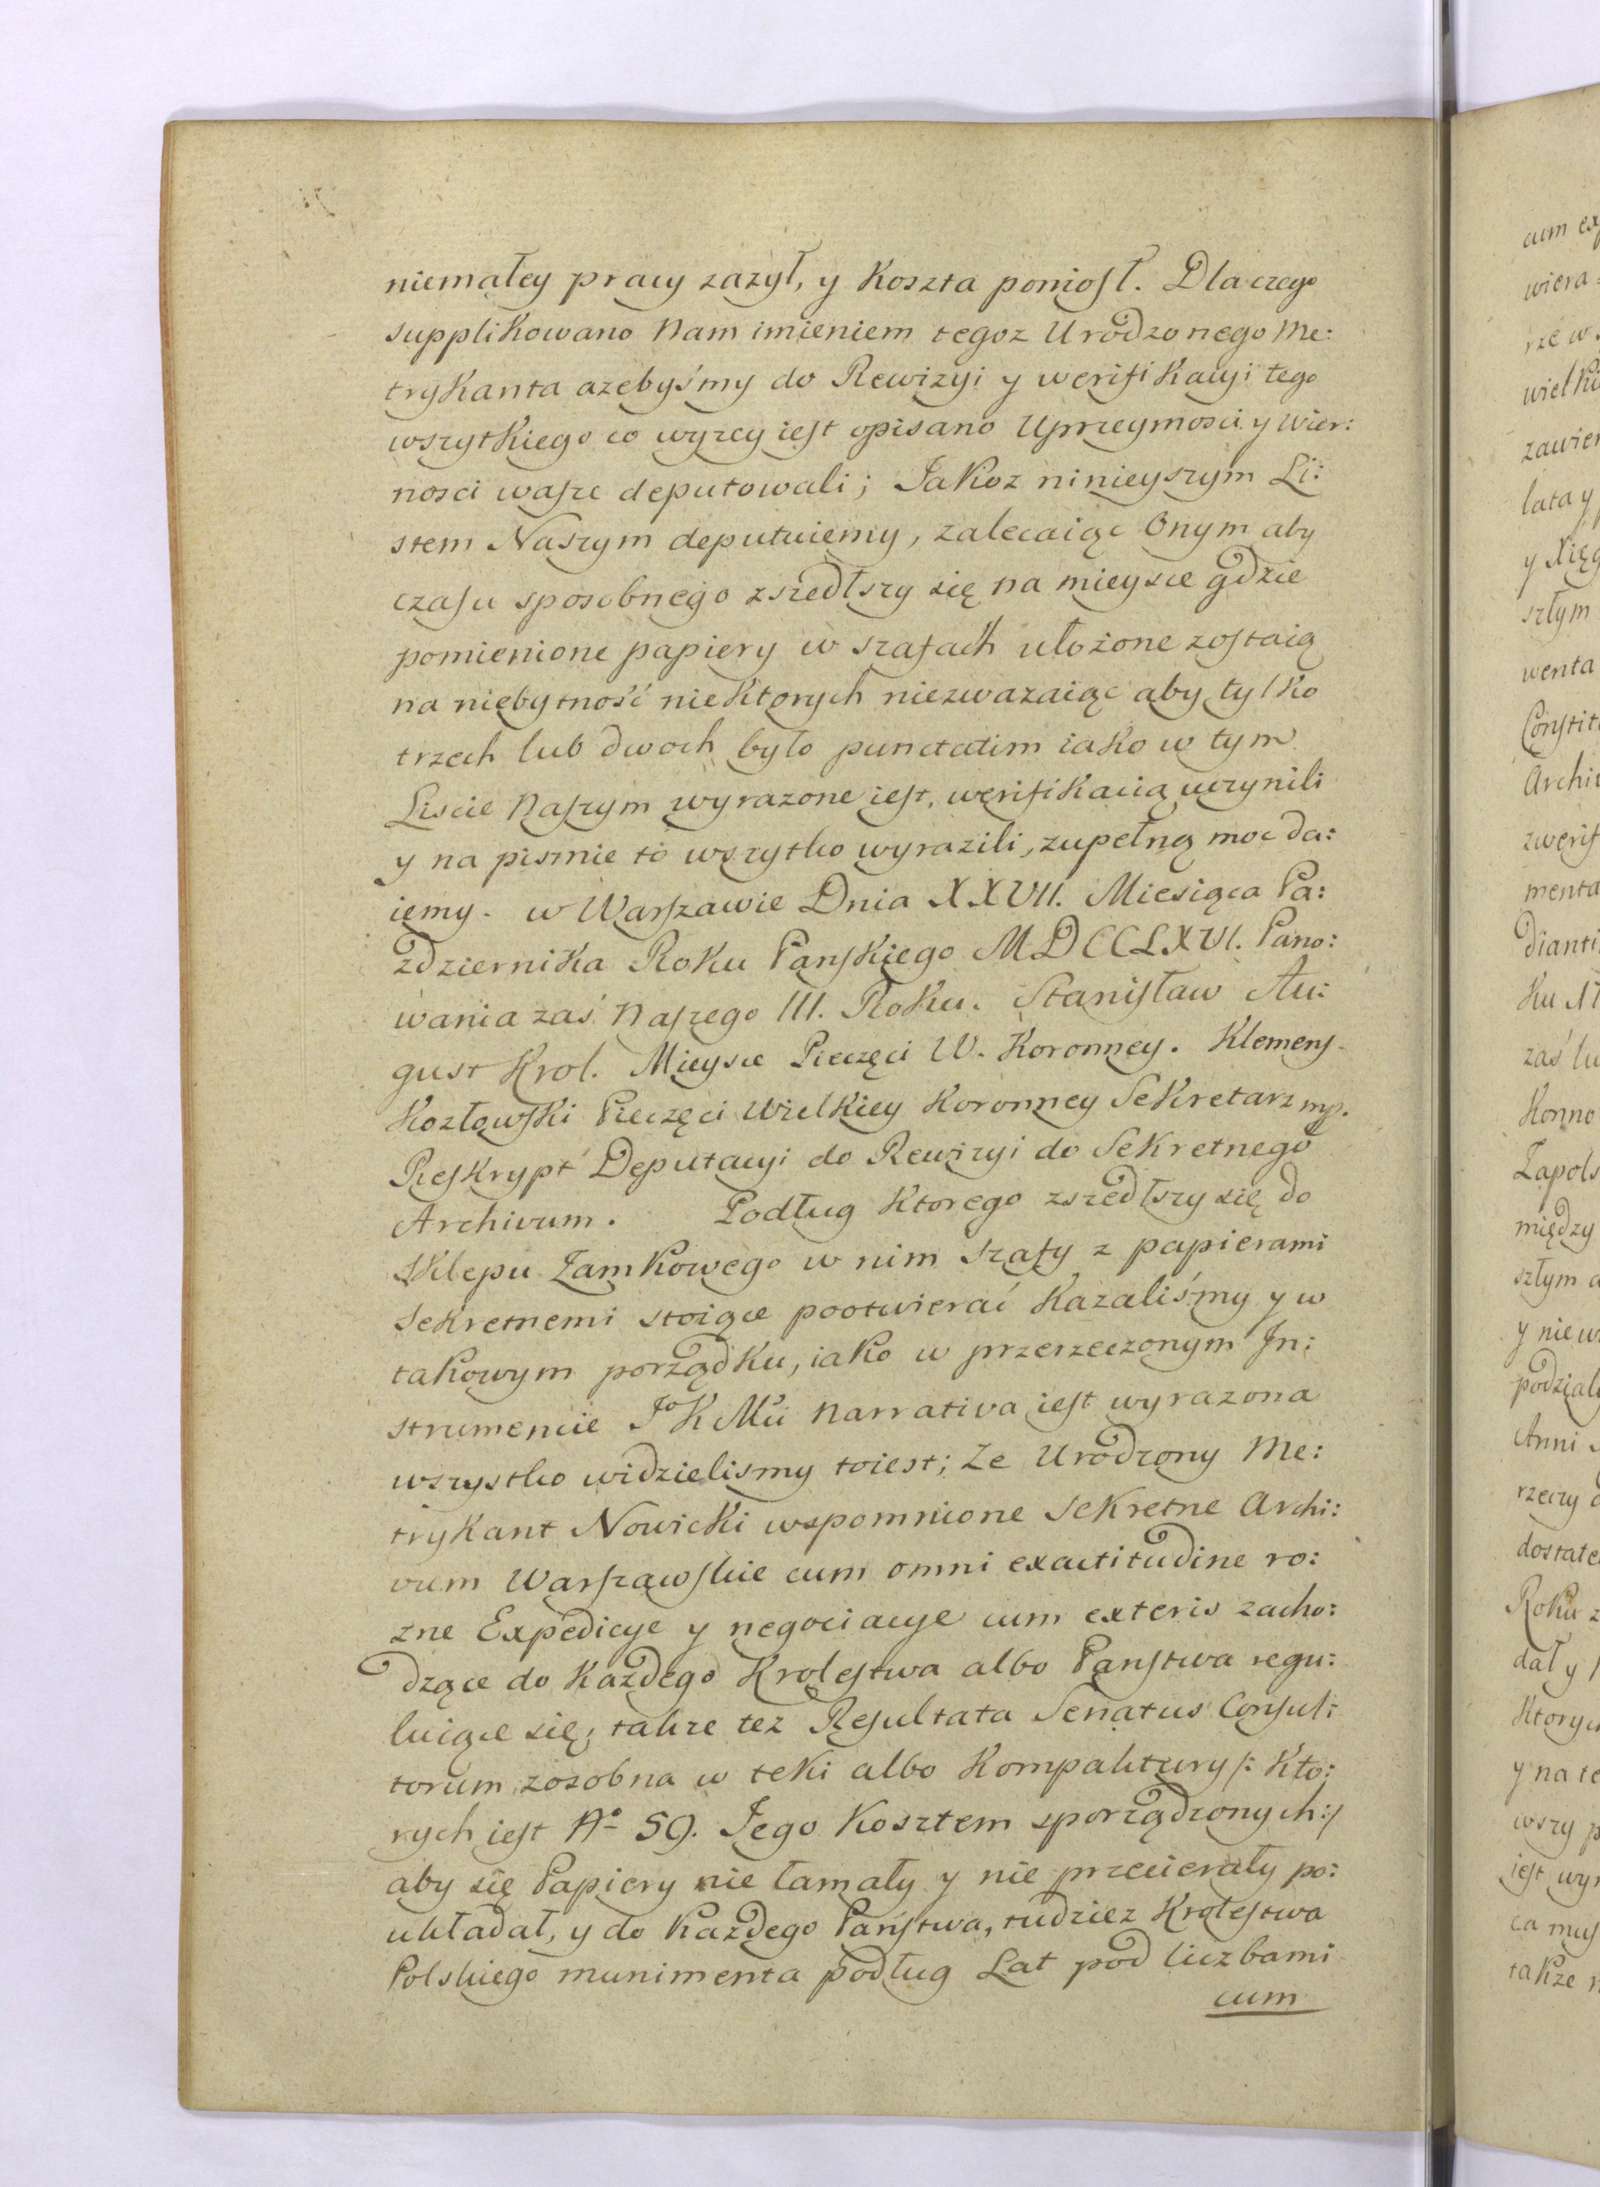 niemałey pracy zazył, y Koszta poniosł. Dlaczego
supplikowano Nam imieniem tegoz Urodzonego Me:
trykanta azebyśmy do Rewizyi y werifikacyi tego
wszytkiego co wyzey iest opisano Uprzeymosci y Wier:
nosci wasze deputowali; Jakoz ninieyszym Li:
stem Naszym deputuiemy, zalecaiąc Onym aby
czasu sposobnego zszedłszy się na mieysce gdzie
pomienione papiery w szafach ułożone zostaią
na niebytność niektorych niezwazaiąc aby tylko
trzech lub dwoch było punctatim iako w tym
Liscie Naszym wyrazone iest, werifikacią uczynili
y na pismie to wszytko wyrazili, zupełną moc da:
iemy. w Warszawie Dnia XXVII. Miesiąca Pa:
zdziernika Roku Panskiego MDCCLXVI. Pano:
wania zaś Naszego III. Roku. Stanisław Au:
gust Krol. Mieysce Pieczęci W. Koronney. Klemens
Kozłowski Pieczęci Wielkiey Koronney Sekretarz mp.
Reskrypt Deputacyi do Rewizyi do Sekretnego
Archivum. Podług ktorego zszedłszy się do
Sklepu Zamkowego w nim szafy z papierami
Sekretnemi stoiące pootwierać kazaliśmy y w
takowym porządku, iako w przerzeczonym In:
strumencie JoKMci Narrativa iest wyrazona
wszystko widzielismy toiest; Ze Urodzony Me:
trykant Nowicki wspomnione Sekretne Archi:
vum Warszawskie cum omni exactitudine ro:
zne Expedicye y negociacye cum exteris zacho:
dzące do każdego Krolestwa albo Panstwa regu:
luiące się, takze tez Resultata Senatus Consul:
torum zosobna w teki albo Kompaktury /: Kto:
rych iest No 59. Jego Kosztem sporządzonych :/
aby się Papiery nie łamały y nie przecierały po:
układał, y do Każdego Państwa, tudziez Krolestwa
Polskiego munimenta podług Lat pod liczbami
cum